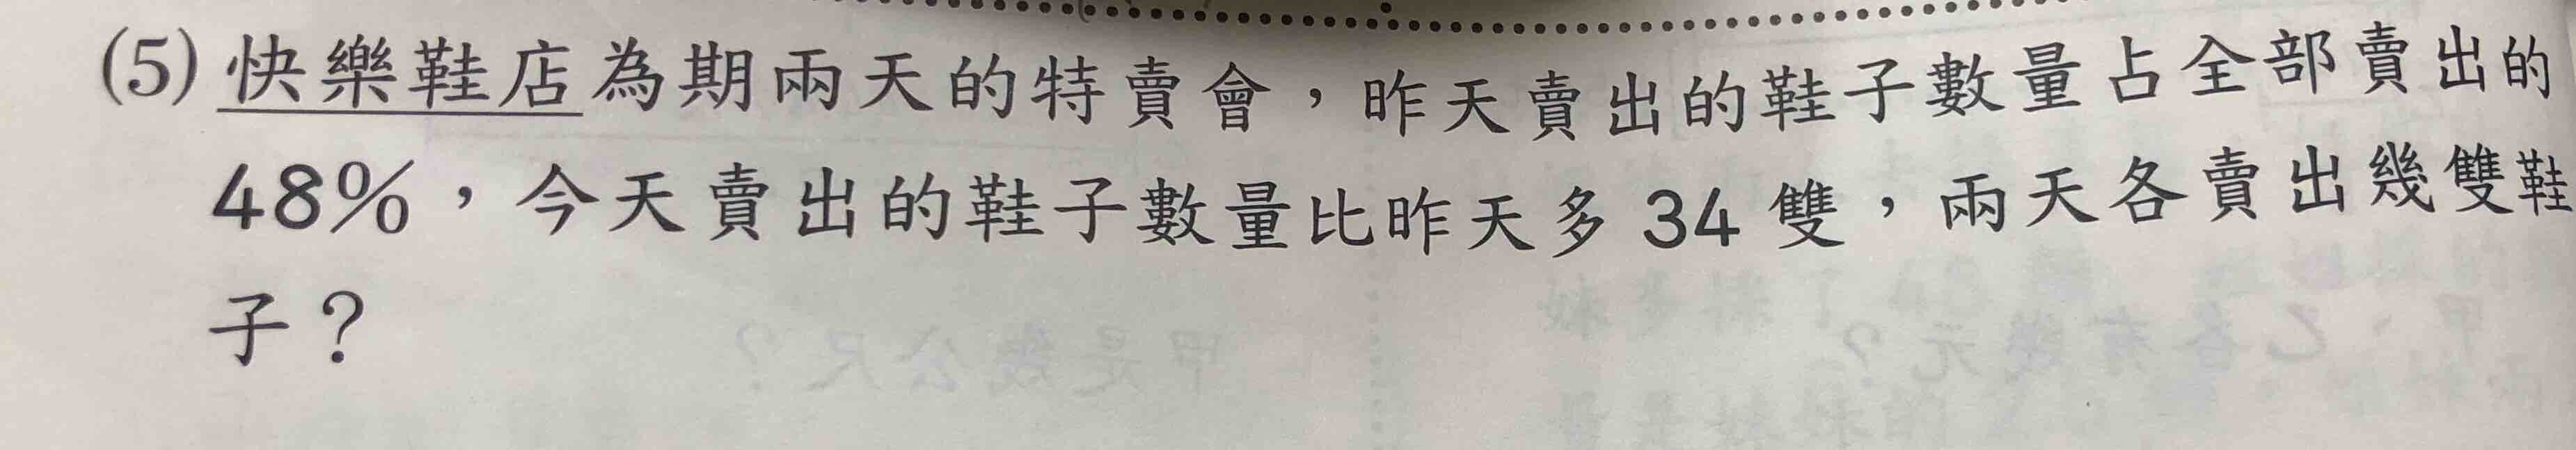 (5) 快樂鞋店為期兩天的特賣會，昨天賣出的鞋子數量占全部賣出的
48%，今天賣出的鞋子數量比昨天多 34 雙，兩天各賣出幾雙鞋
子？